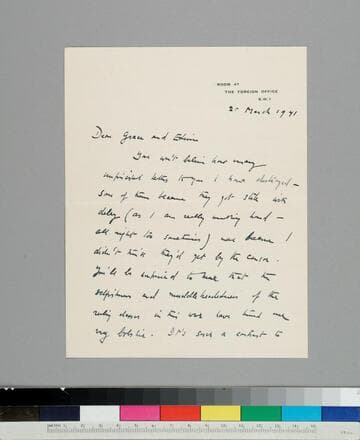 ROOM 47
THE FOREIGN OFFICE
S.W.1
25 March 1941
Dear Grace and Edwin
You won't believe how many
unfinished letters to you I have destroyed —
some of them because they got stale with
delay (as I am really working hard —
all night too sometimes) and because I
didn't think they'd get by the censor.
You'll be surprised to hear that the
selfishness and muddleheadedness of the
ruling classes in this war have turned me
very bolshie. It's such a contrast to